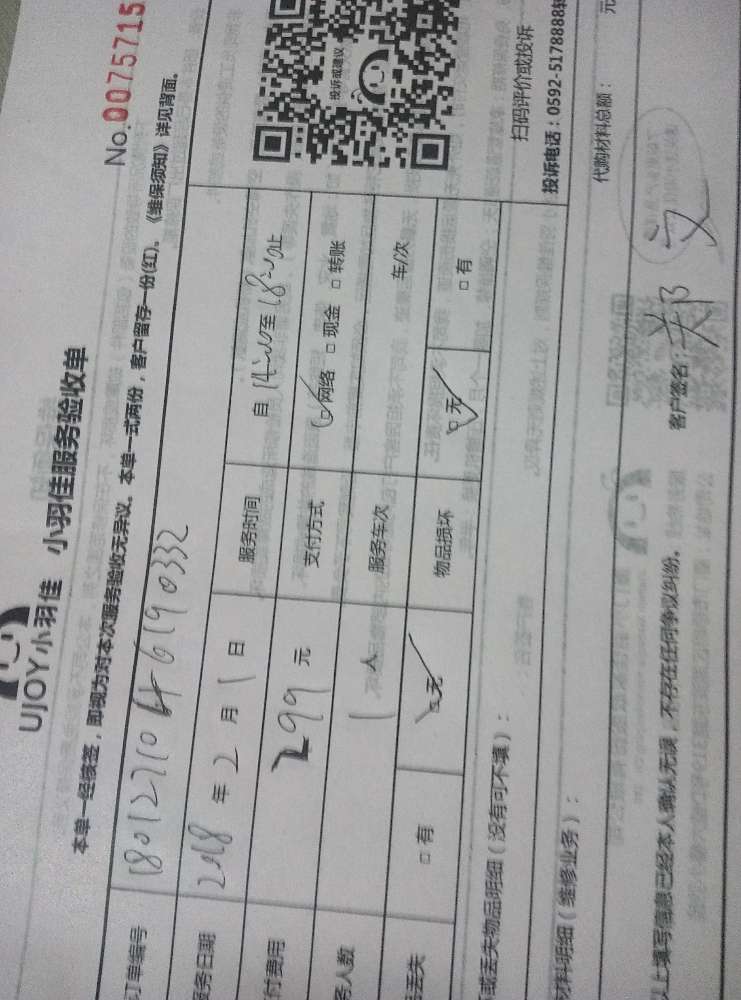 No.0075715
UJOY小羽佳 小羽佳服务验收单
本单一经核签，即视为对本次服务验收无异议。本单一式两份，客户留存一份(红)。《维保须知》详见背面。
订单编号
服务日期 2018 年 2 月 1 日 服务时间 自 14:00 至 18:00 止
付费用 299 元 支付方式 ☑网络 □现金 □转账
务人数 1 人 服务车次 车/次
丢失 □有 ☑无 物品损坏 ☑无 □有
或丢失物品明细（没有可不填）：
材料明细（维修业务）：
代购材料总额： 元
投诉或建议
扫码评价或投诉
投诉电话：0592-5178888转
以上填写信息已经本人确认无误，不存在任何争议纠纷。 客户签名：郑